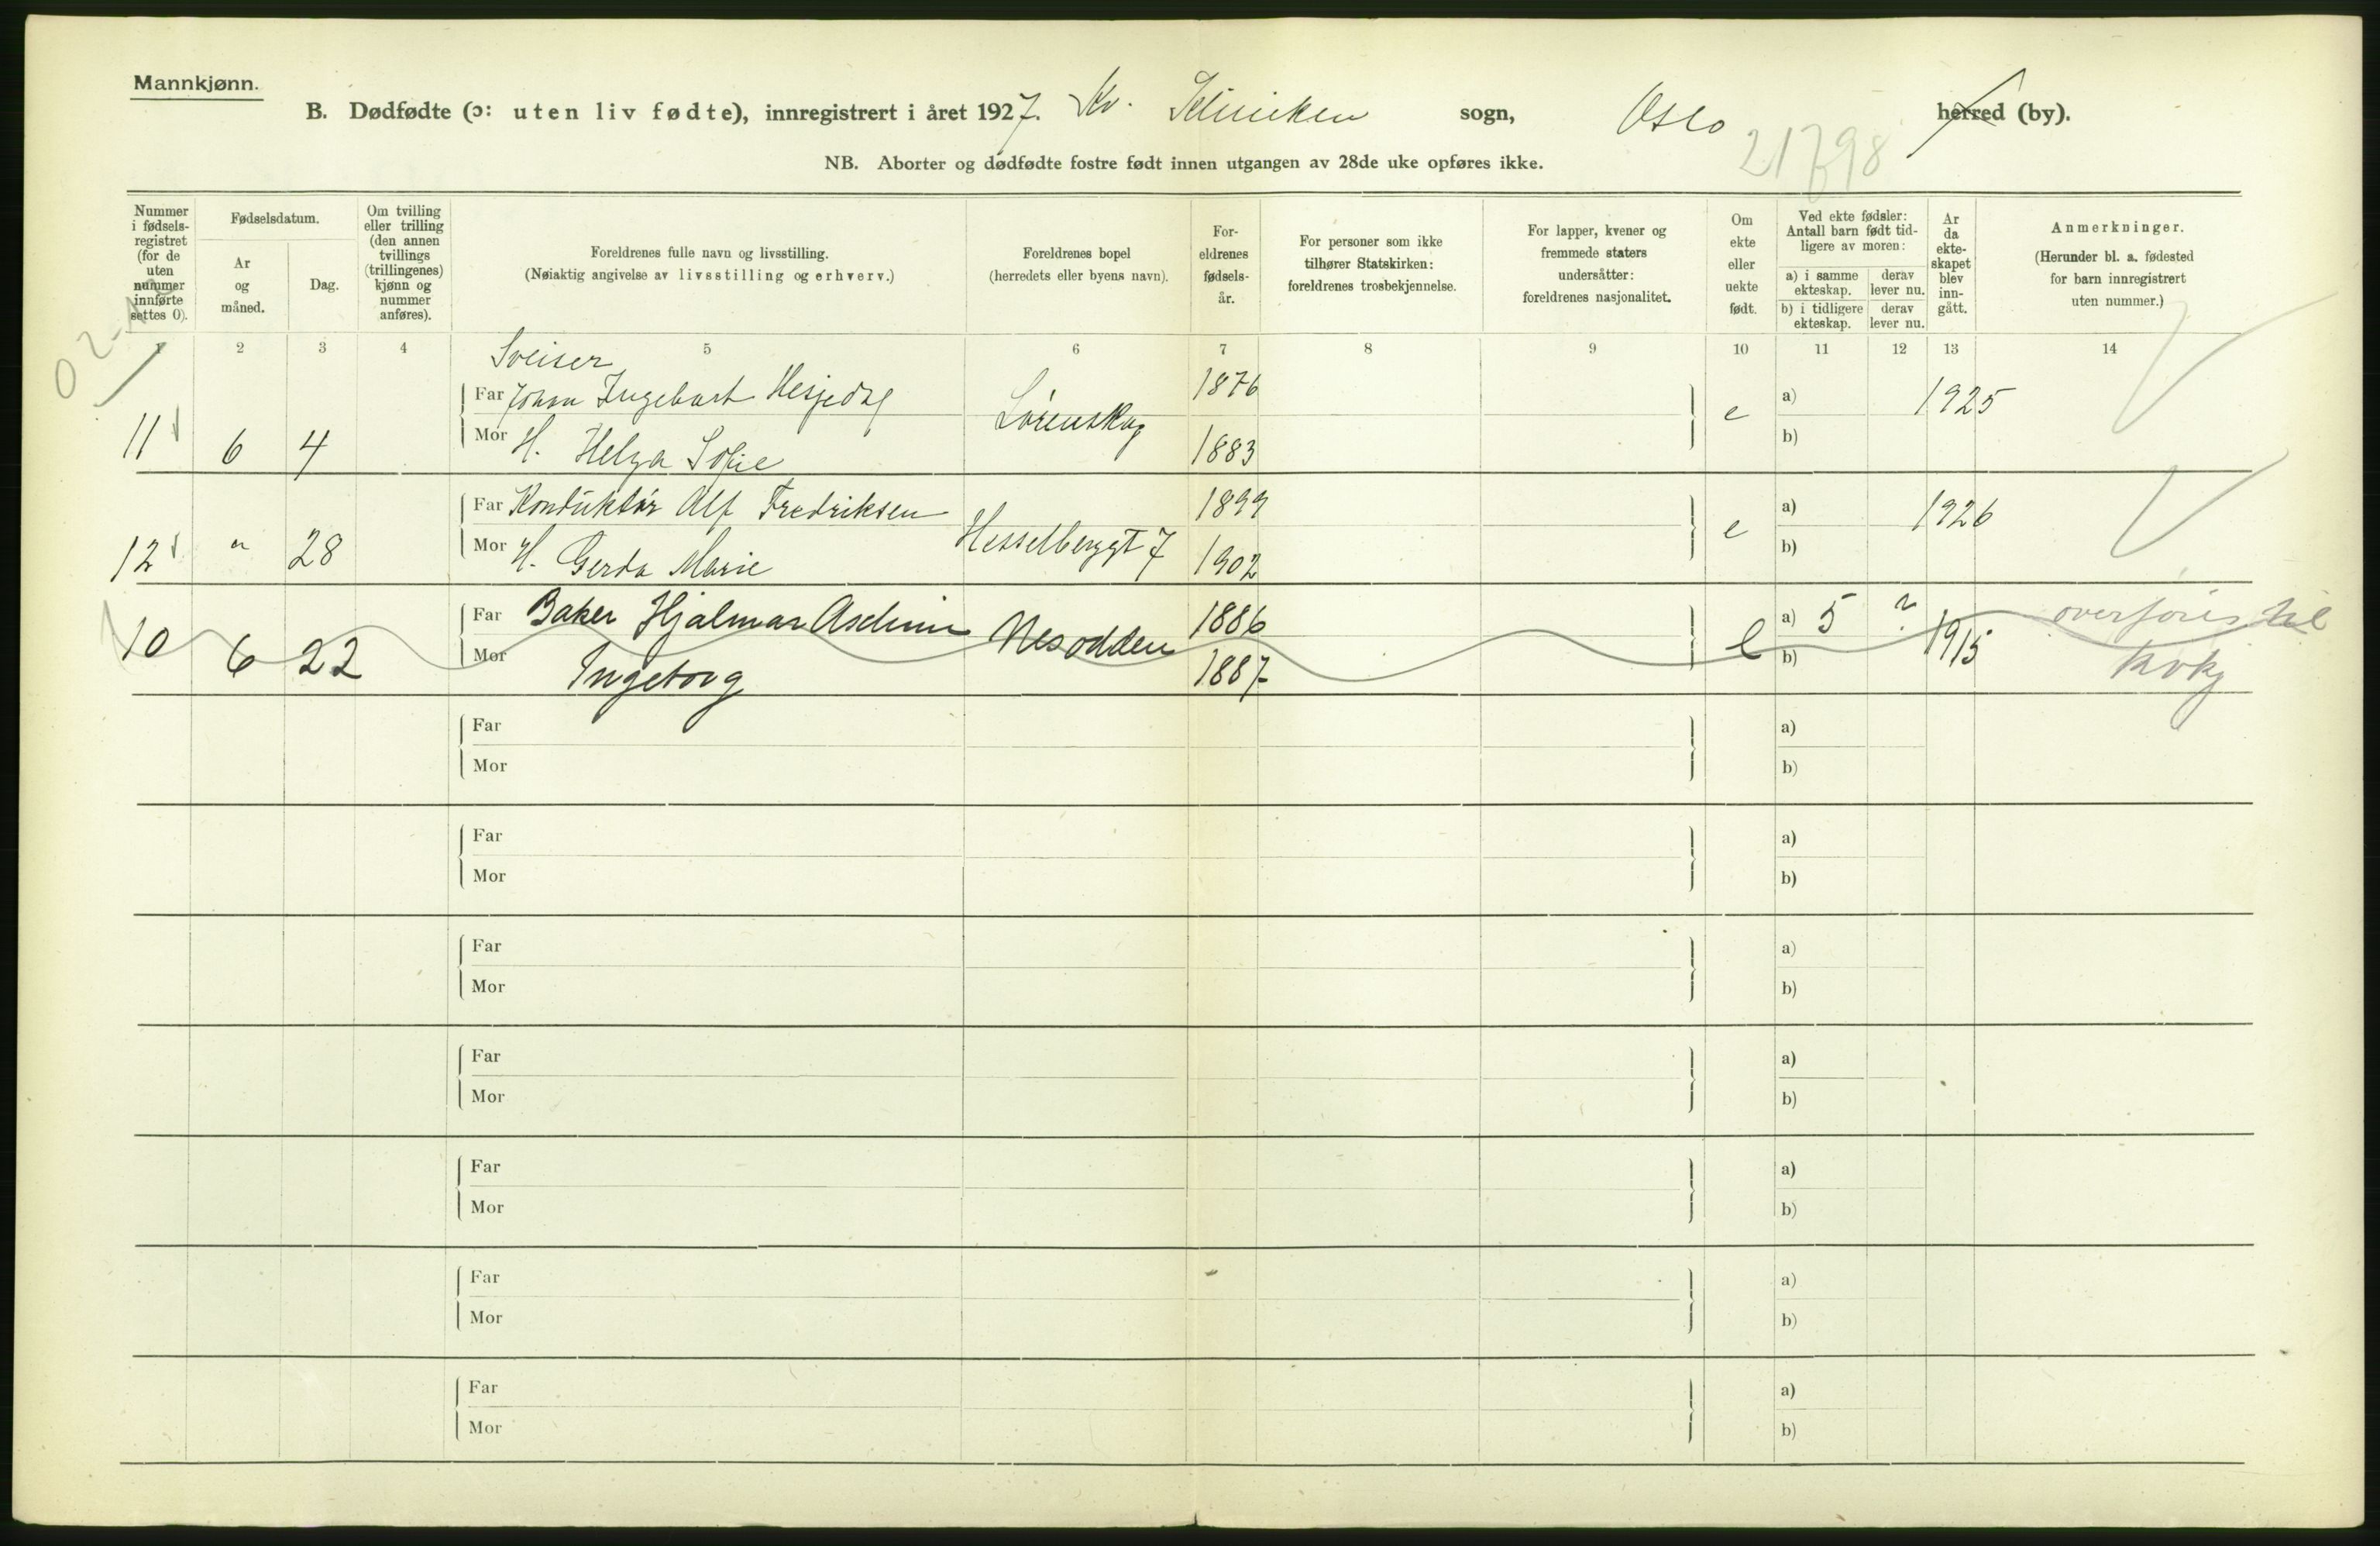 Mannkjønn.
B. Dødfødte (ɔ: uten liv fødte), innregistrert i året 1927. Kv. Kliniken sogn, Oslo herred (by).
21798
NB. Aborter og dødfødte fostre født innen utgangen av 28de uke opføres ikke.
Nummer i fødsels-registret (for de uten nummer innførte settes 0).
Fødselsdatum.
Ar og måned.
Dag.
Om tvilling eller trilling (den annen tvillings (trillingenes) kjønn og nummer anføres).
Foreldrenes fulle navn og livsstilling.
(Nøiaktig angivelse av livsstilling og erhverv.)
Foreldrenes bopel
(herredets eller byens navn).
For-eldrenes fødsels-år.
For personer som ikke tilhører Statskirken: foreldrenes trosbekjennelse.
For lapper, kvener og fremmede staters undersåtter: foreldrenes nasjonalitet.
Om ekte eller uekte født.
Ved ekte fødsler: Antall barn født tid-ligere av moren:
a) i samme ekteskap.
derav lever nu.
b) i tidligere ekteskap.
derav lever nu.
Ar da ekte-skapet blev inn-gått.
Anmerkninger.
(Herunder bl. a. fødested for barn innregistrert uten nummer.)
1 2 3 4 5 6 7 8 9 10 11 12 13 14
02-
Sveiser
Far Johan Ingebart Hesjedal 1876 a) 1925
11 6 4 Lørenskog e
Mor H. Helga Sofie 1883 b)
Far Konduktør Alf Fredriksen 1899 a) 1926
12 " 28 Hesselberggt 7 e
Mor H. Gerda Marie 1902 b)
Far Baker Hjalmar 1886 a) 5 ? 1915 overføres til
10 6 22 Nesodden e
Mor Ingeborg 1887 b)
Far a)
Mor b)
Far a)
Mor b)
Far a)
Mor b)
Far a)
Mor b)
Far a)
Mor b)
Far a)
Mor b)
Far a)
Mor b)